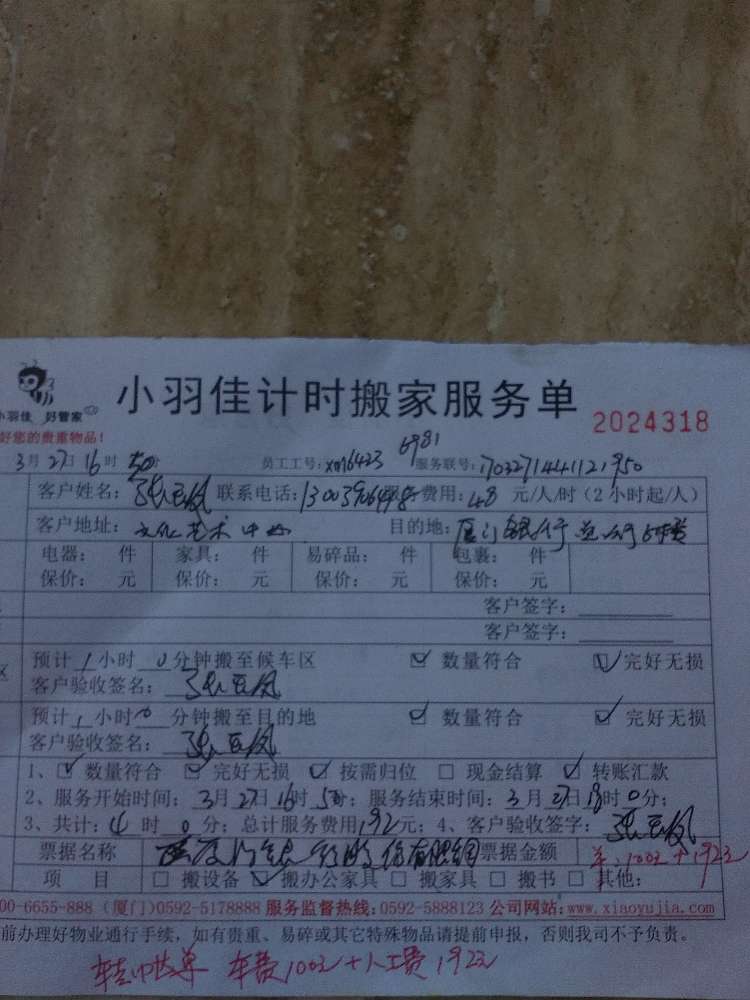 小羽佳计时搬家服务单 2024318
小羽佳 好管家
好您的贵重物品！
3月27日16时50分 员工工号：xm16423 6981 服务联号：1703271441121950
客户姓名： 联系电话： 服务费用：48 元/人/时（2小时起/人）
客户地址：文化艺术中心 目的地：厦门银行
电器： 件 家具： 件 易碎品： 件 包裹： 件
保价： 元 保价： 元 保价： 元 保价： 元
客户签字：
客户签字：
预计1小时0分钟搬至候车区 ☑ 数量符合 ☑ 完好无损
客户验收签名：
预计1小时0分钟搬至目的地 ☑ 数量符合 ☑ 完好无损
客户验收签名：
1、☑ 数量符合 ☑ 完好无损 ☑ 按需归位 □ 现金结算 ☑ 转账汇款
2、服务开始时间：3月27日16时50分；服务结束时间：3月27日18时0分；
3、共计：4时0分；总计服务费用192元；4、客户验收签字：
票据名称 票据金额
项 目 □ 搬设备 ☑ 搬办公家具 □ 搬家具 □ 搬书 □ 其他：
00-6655-888（厦门）0592-5178888 服务监督热线：0592-5888123 公司网站：www.xiaoyujia.com
前办理好物业通行手续，如有贵重、易碎或其它特殊物品请提前申报，否则我司不予负责。
车费100元+人工费192元